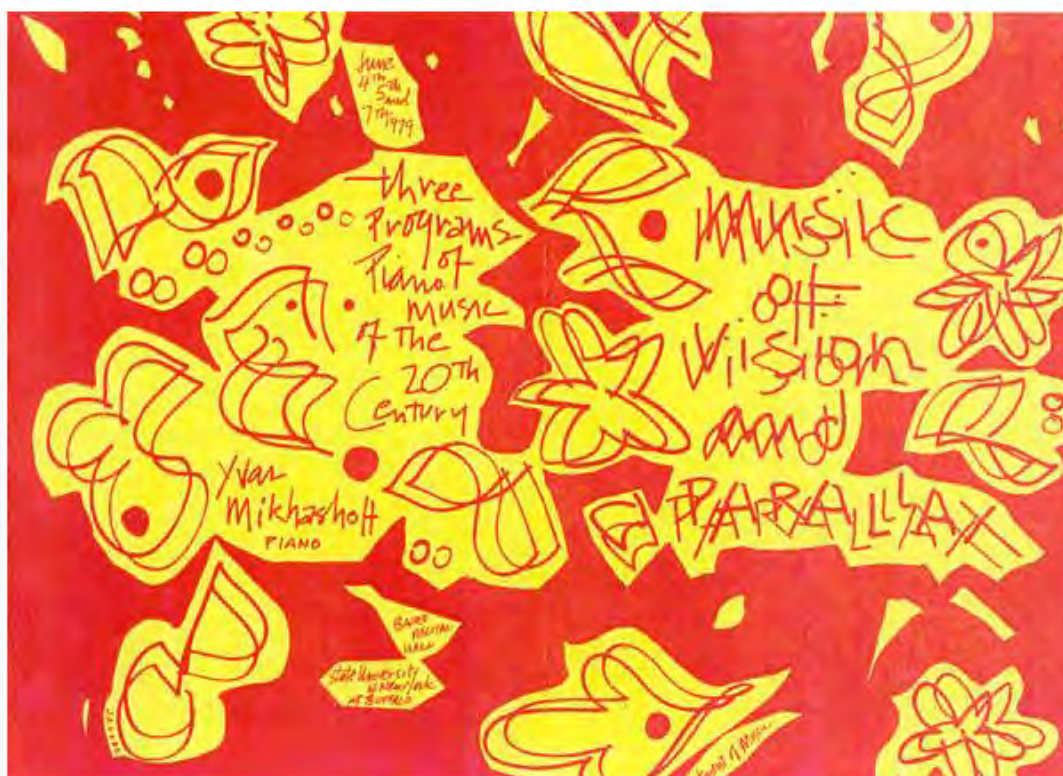 June
4TH
5TH and
7TH 1979
three
Programs
of
Piano
music
of the
20TH
Century
Yvar
Mikhashoff
PIANO
music
of
Vision
and
PARALLAX
BAIRD
RECITAL
HALL
State University
of New York
AT BUFFALO
of Music